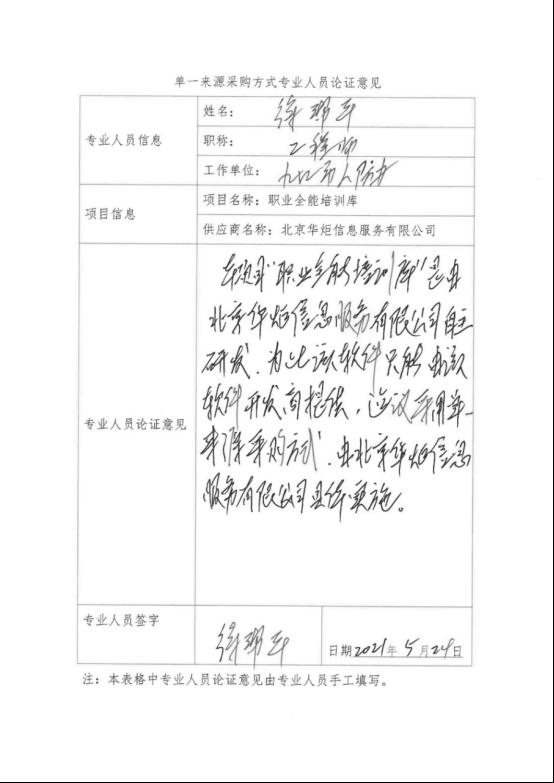 单一来源采购方式专业人员论证意见
专业人员信息
姓名：
职称： 工程师
工作单位：
项目信息
项目名称：职业全能培训库
供应商名称：北京华炬信息服务有限公司
专业人员论证意见
本项目“职业全能培训库”是由
北京华炬信息服务有限公司自主
研发，为此该软件只能由该
软件开发商提供，建议采用单一
来源采购方式，由北京华炬信息
服务有限公司具体实施。
专业人员签字
日期2021年5月24日
注：本表格中专业人员论证意见由专业人员手工填写。